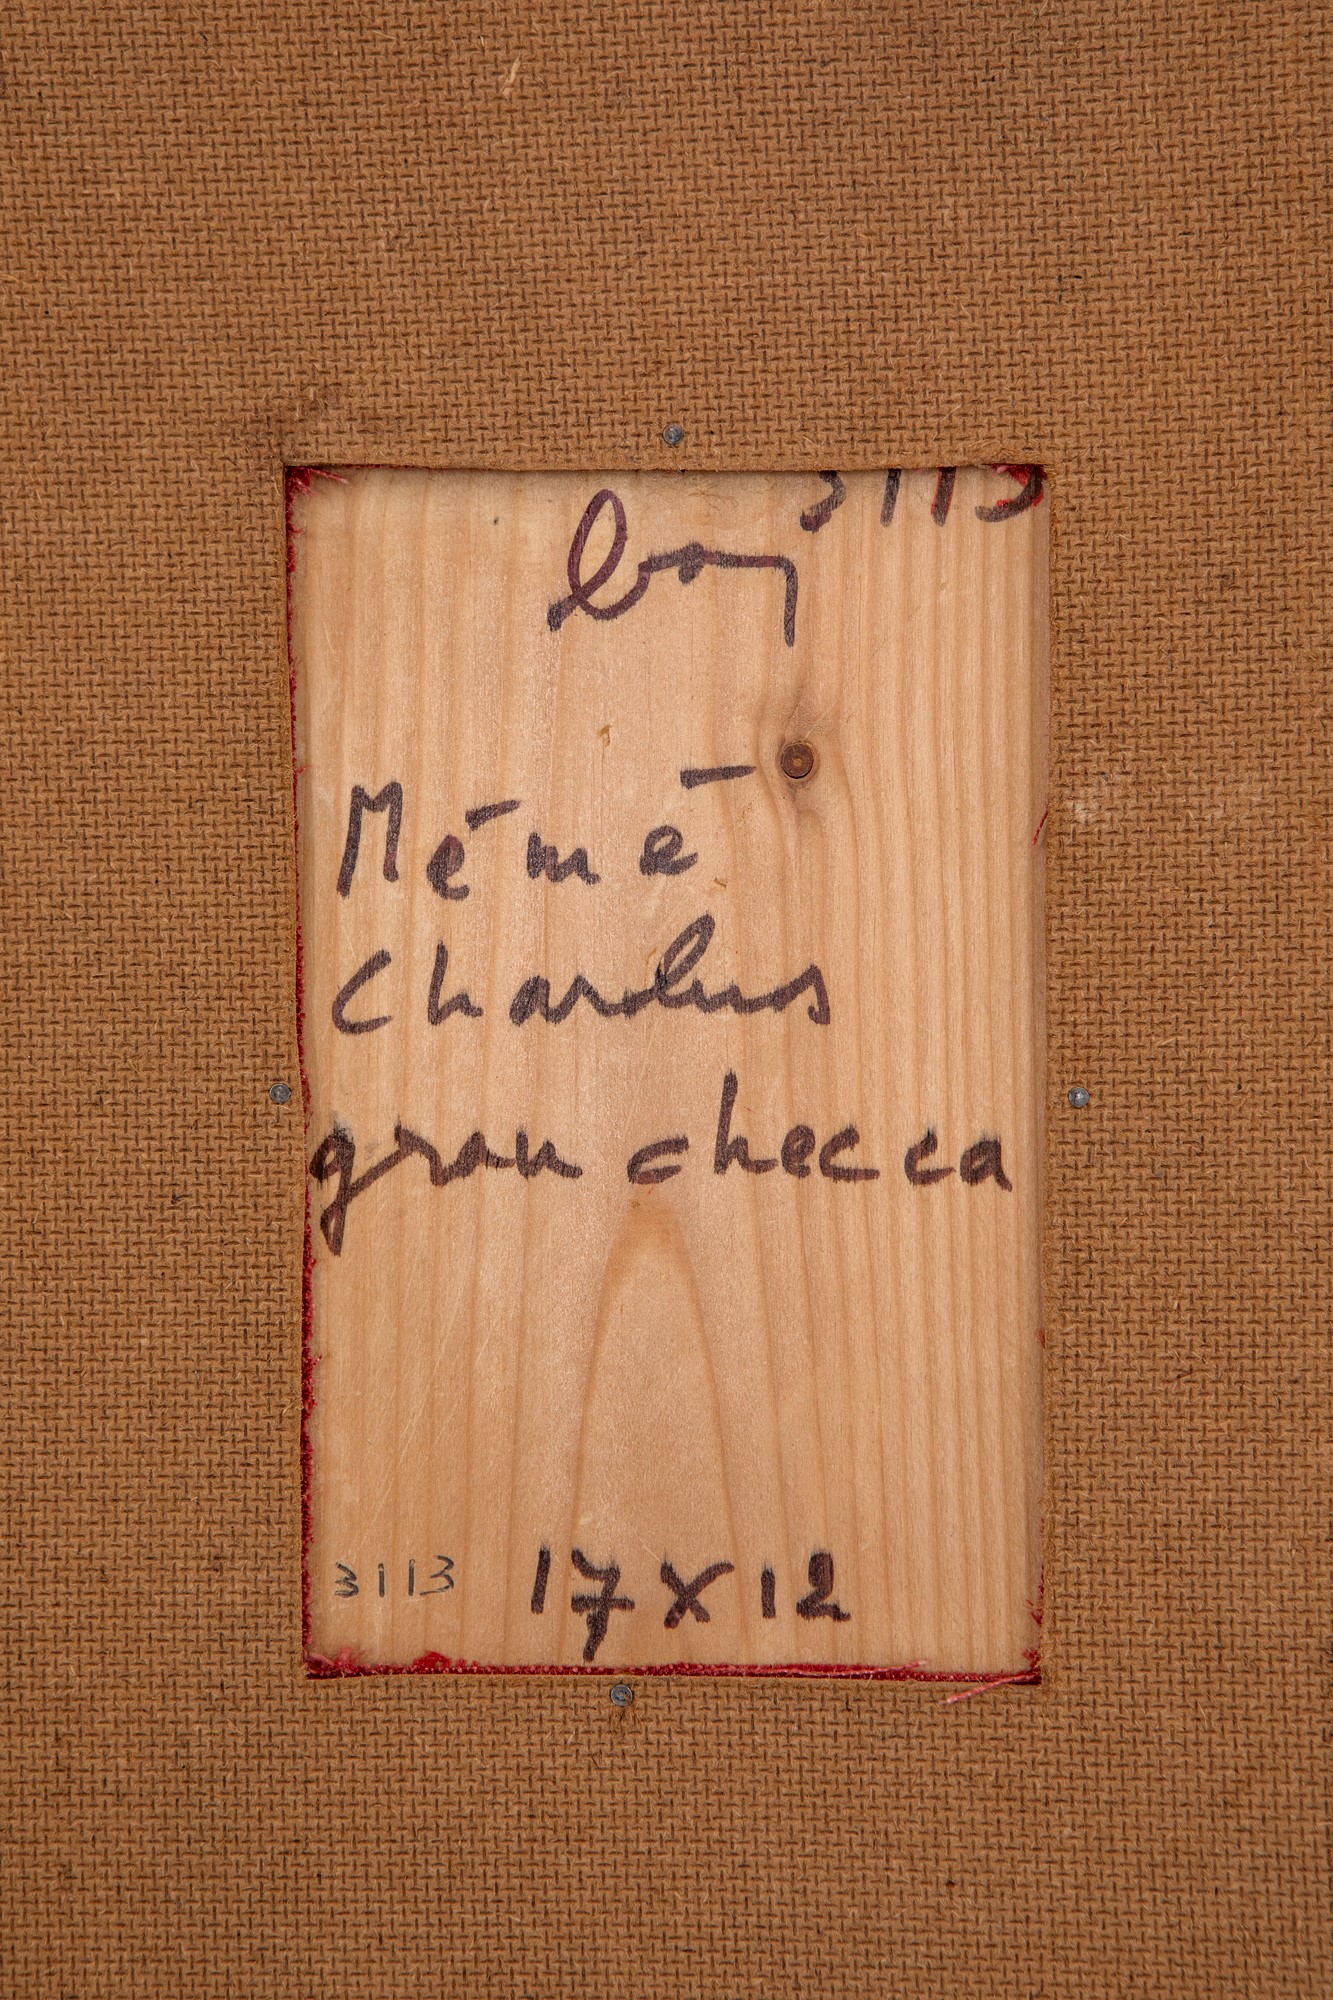 3113
baj
Mémé
Charlus
gran checca
3113 17 x 12